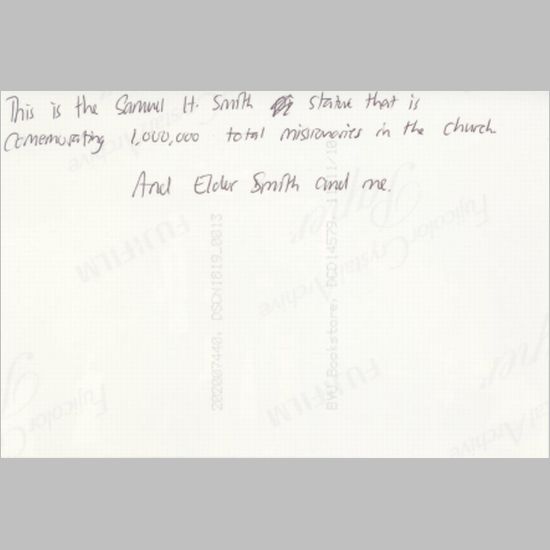 This is the Samuel H. Smith statue that is
Comemorating 1,000,000 total missionaries in the church
And Elder Smith and me.
FUJIFILM
Fujicolor Crystal Archive
Paper
202007440, DSCN1819_0013
BYU Bookstore,
FUJIFILM
Fujicolor